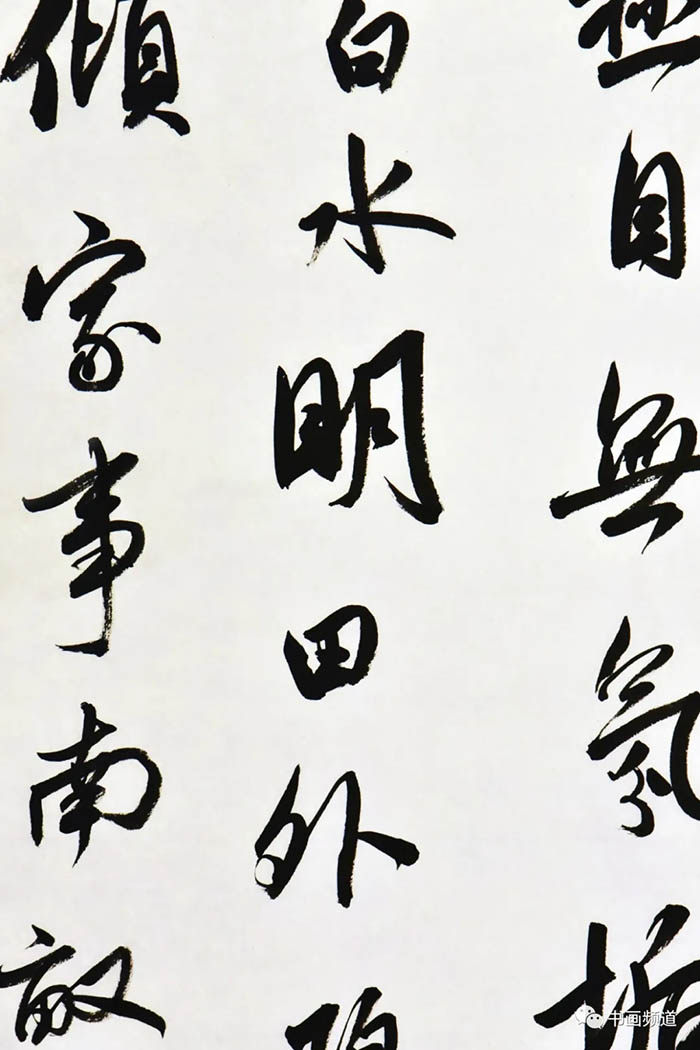 極目無氛垢
白水明田外碧
傾家事南畝
书画频道